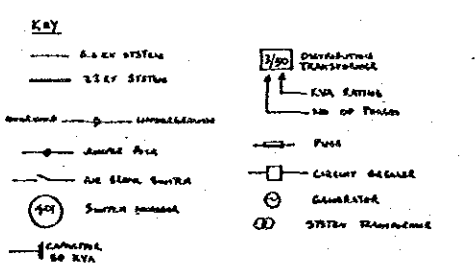 KEY
6.6 KV SYSTEM
33 KV SYSTEM
OVERHEAD UNDERGROUND
JUMPER
AIR BREAK SWITCH
401 SWITCH NUMBER
CAPACITOR
50 KVA
3/50 DISTRIBUTION
TRANSFORMER
KVA RATING
NO OF PHASES
FUSE
CIRCUIT BREAKER
GENERATOR
SYSTEM TRANSFORMER